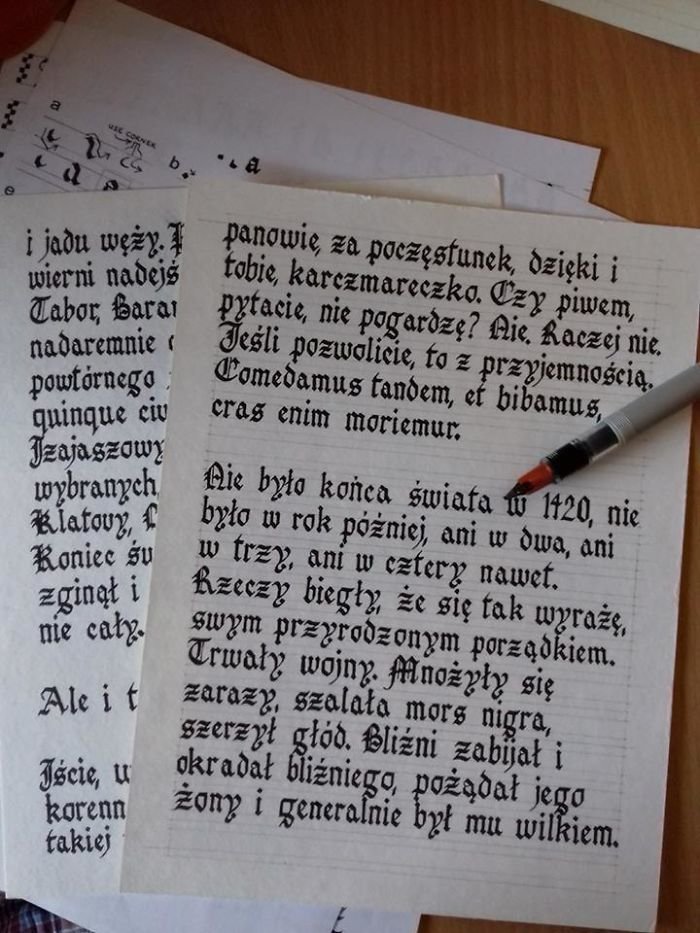 a
USE CORNER
b
a
e
i jadu węży.
wierni nadejś
Tabor, Baran
nadaremnie
powtórnego
quinque civ
Izajaszowy
wybranych
Klatovy,
Koniec św
zginął i
nie cały.
Ale i t
Iście, w
korenn
takiej
panowie, za poczęstunek, dzięki i
tobie, karczmareczko. Czy piwem,
pytacie, nie pogardzę? Nie. Raczej nie.
Jeśli pozwolicie, to z przyjemnością.
Comedamus tandem, et bibamus,
cras enim moriemur.
Nie było końca świata w 1420, nie
było w rok później, ani w dwa, ani
w trzy, ani w cztery nawet.
Rzeczy biegły, że się tak wyrażę,
swym przyrodzonym porządkiem.
Trwały wojny. Mnożyły się
zarazy, szalała mors nigra,
szerzył głód. Bliźni zabijał i
okradał bliźniego, pożądał jego
żony i generalnie był mu wilkiem.